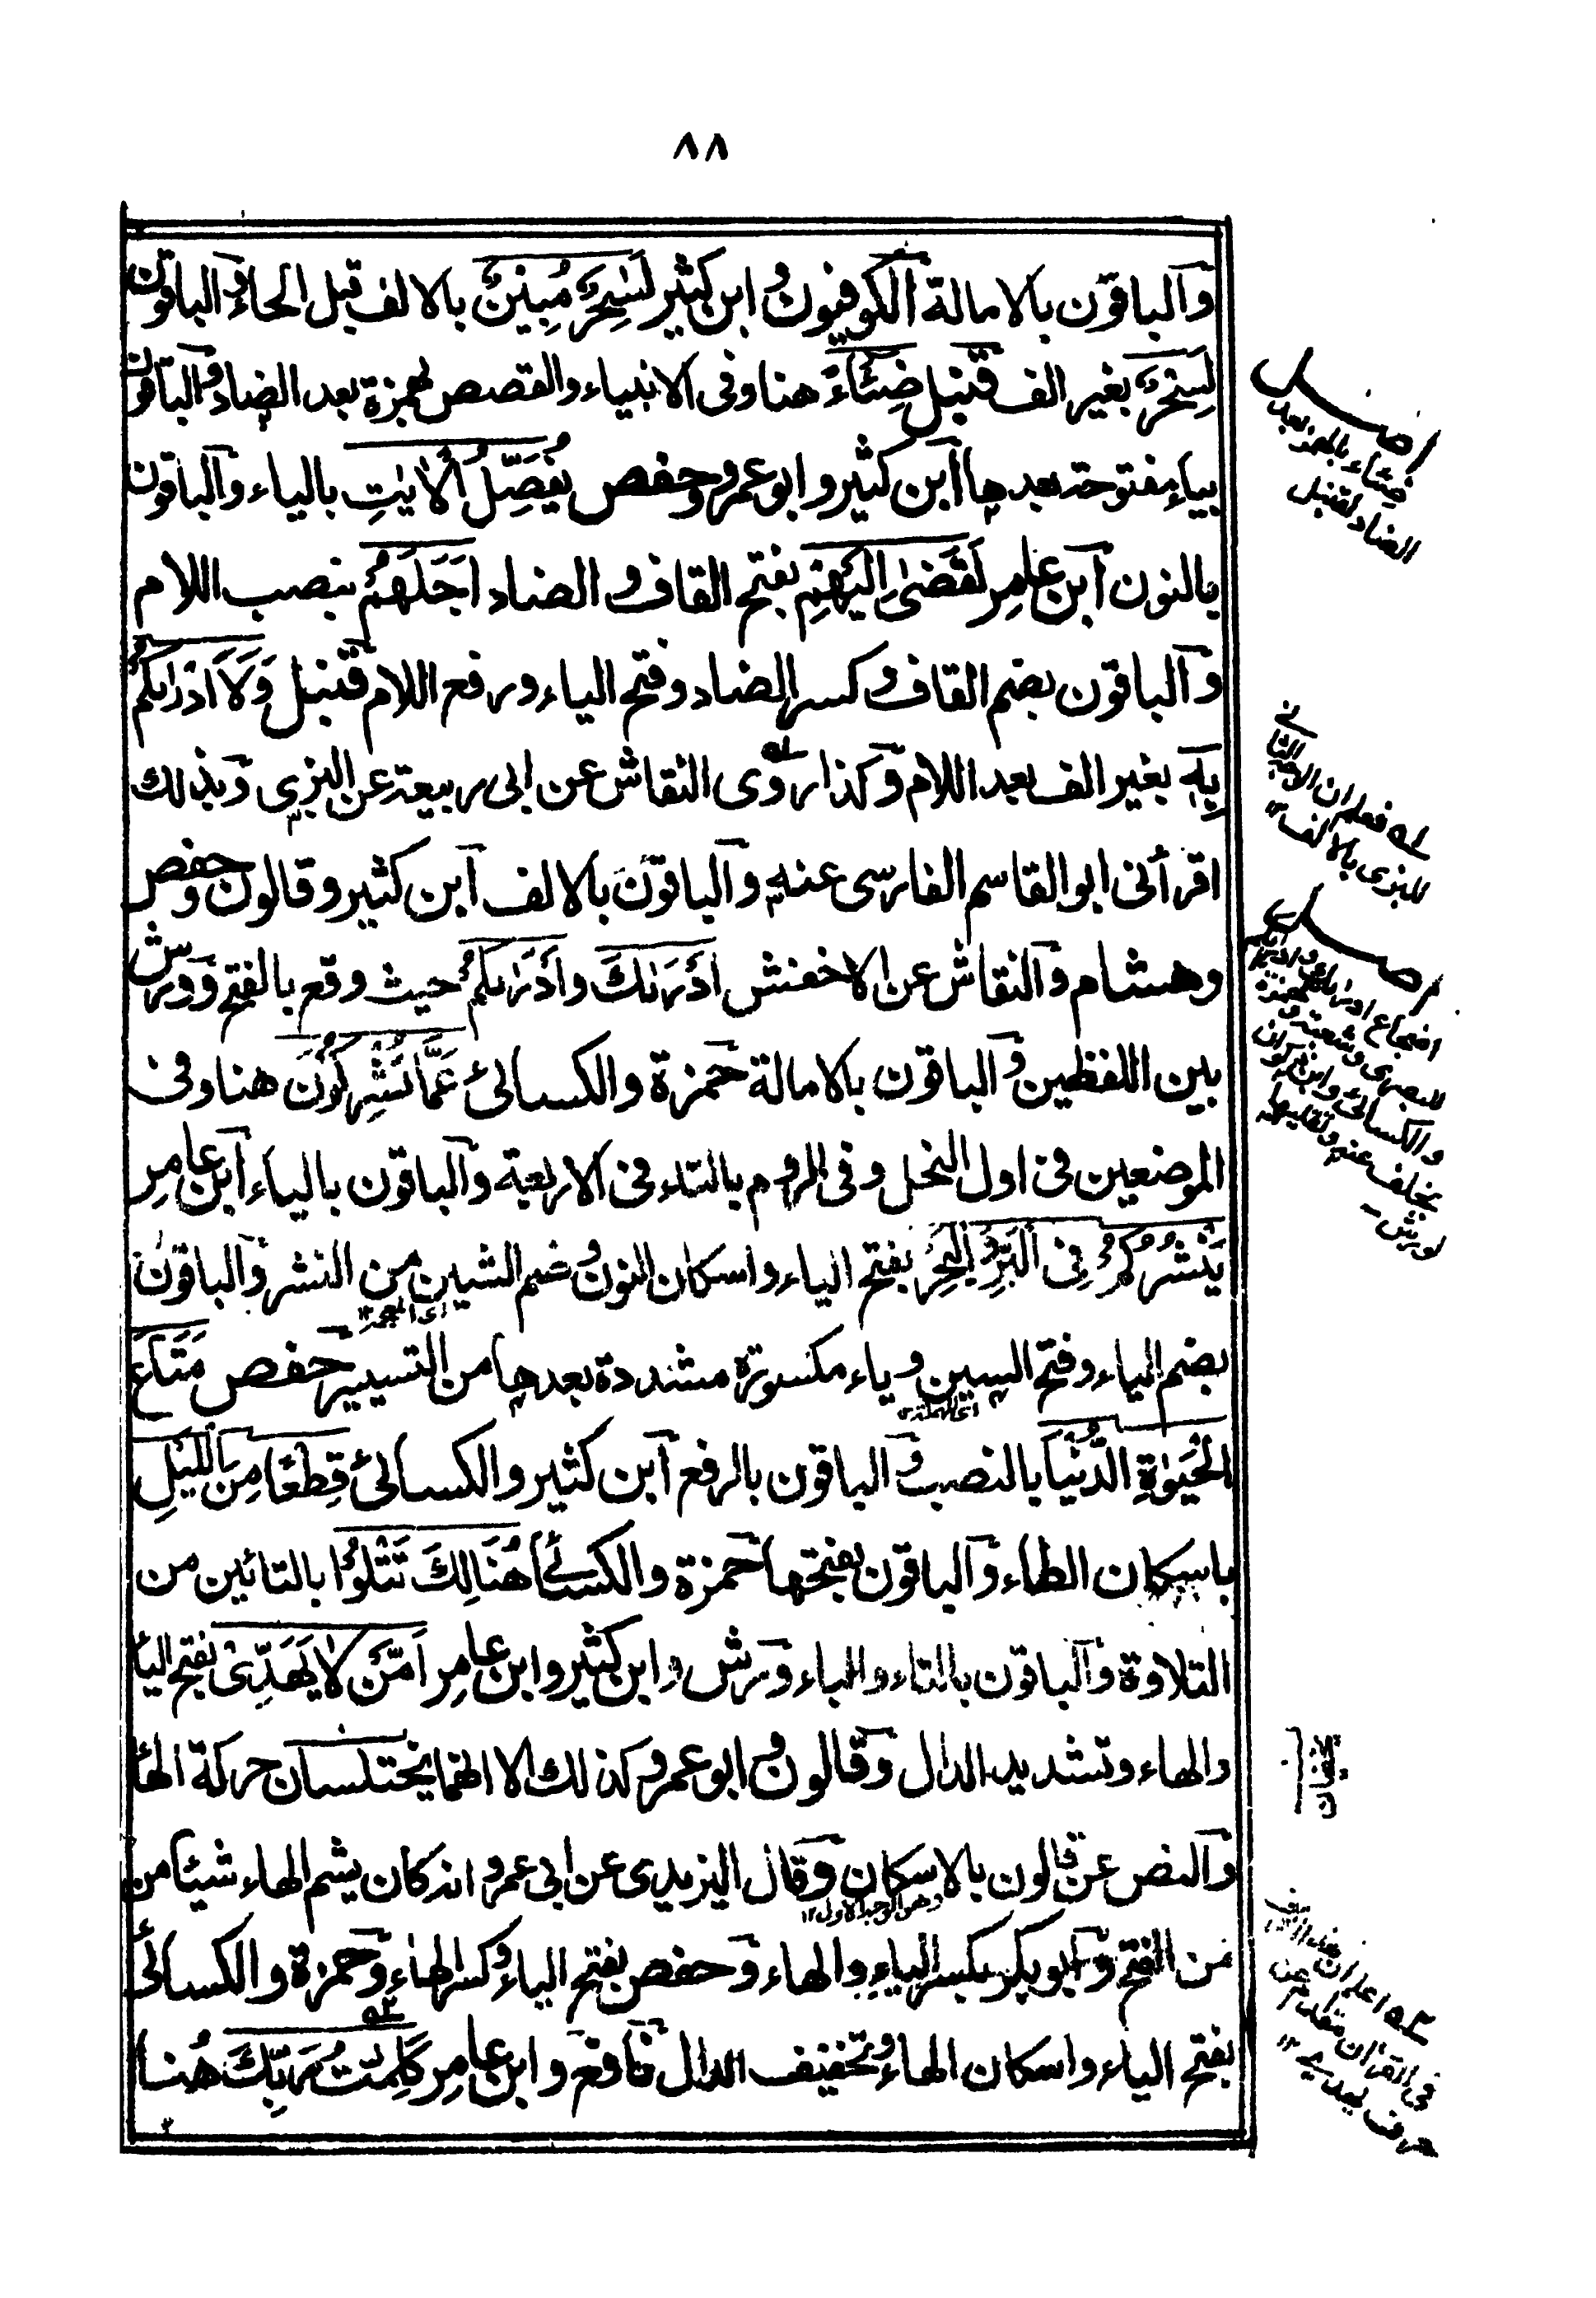 ٨٨
والباقون بالامالة الكوفيون وابن كثير لَسٰحِرٌ مُبِيْنٌ بالالف قبل الحاء والباقون
لَسِحْرٌ بغير الف قنبل ضِئَاءً هنا وفى الانبياء والقصص بهمزة بعد الضاد والباقون
بياء مفتوحة بعدها ابن كثير وابو عمرو وحفص يُفَصِّلُ الْاٰيٰتِ بالياء والباقون
بالنون ابن عامر لَقَضٰى اِلَيْهِمْ بفتح القاف والضاد اَجَلَهُمْ بنصب اللام
والباقون بضم القاف وكسر الضاد وفتح الياء ورفع اللام قنبل وَلَاَدْرٰىكُمْ
بِهٖ بغير الف بعد اللام وكذا روى النقاش عن ابى ربيعة عن البزى وبذلك
اقرأنى ابو القاسم الفارسى عنه والباقون بالالف ابن كثير وقالون وحفص
وهشام والنقاش عن الاخفش اَدْرٰىكَ وَاَدْرٰىكُمْ حيث وقع بالفتح وورش
بين اللفظين والباقون بالامالة حمزة والكسائى عَمَّا تُشْرِكُوْنَ هنا وفى
الموضعين فى اول النحل وفى الروم بالتاء فى الاربعة والباقون بالياء ابن عامر
يَنْشُرُكُمْ فِى الْبَرِّ وَالْبَحْرِ بفتح الياء واسكان النون وضم الشين من النشر والباقون
اى المعجمة ١٢
بضم الياء وفتح السين وياء مكسورة مشددة بعدها من التسيير حفص مَتَاعَ
اى المهملة ١٢
الْحَيٰوةِ الدُّنْيَا بالنصب والباقون بالرفع ابن كثير والكسائى قِطْعًا مِنَ الَّيْلِ
باسكان الطاء والباقون بفتحها حمزة والكسائى هُنَالِكَ تَتْلُوْا بالتائين من
التلاوة والباقون بالتاء والباء ورش وابن كثير وابن عامر اَمَّنْ لَا يَهَدِّىْ بفتح اليا
والهاء وتشديد الدال وقالون وابو عمرو كذلك الا انهما يختلسان حركة الها
والنص عن قالون بالاسكان وقال اليزيدى عن ابى عمرو انه كان يشم الهاء شيئا من
وهو الوجه الاول ١٢
من الفتح وابو بكر بكسر الياء والهاء وحفص بفتح الياء وكسر الهاء وحمزة والكسائى
بفتح الياء واسكان الهاء وتخفيف الدال نافع وابن عامر كَلِمٰتُ رَبِّكَ هُنا
اصل
ضئاء بالهمز بعد
الضاد لقنبل
له فعلم ان الوجه الثانى
للبزى بالالف ١٢
اصل
اضجاع
للبصرى وشعبة وحمزة
والكسائى وابن ذكوان
بخلف عنه وتقليلها
لورش
يخفيان